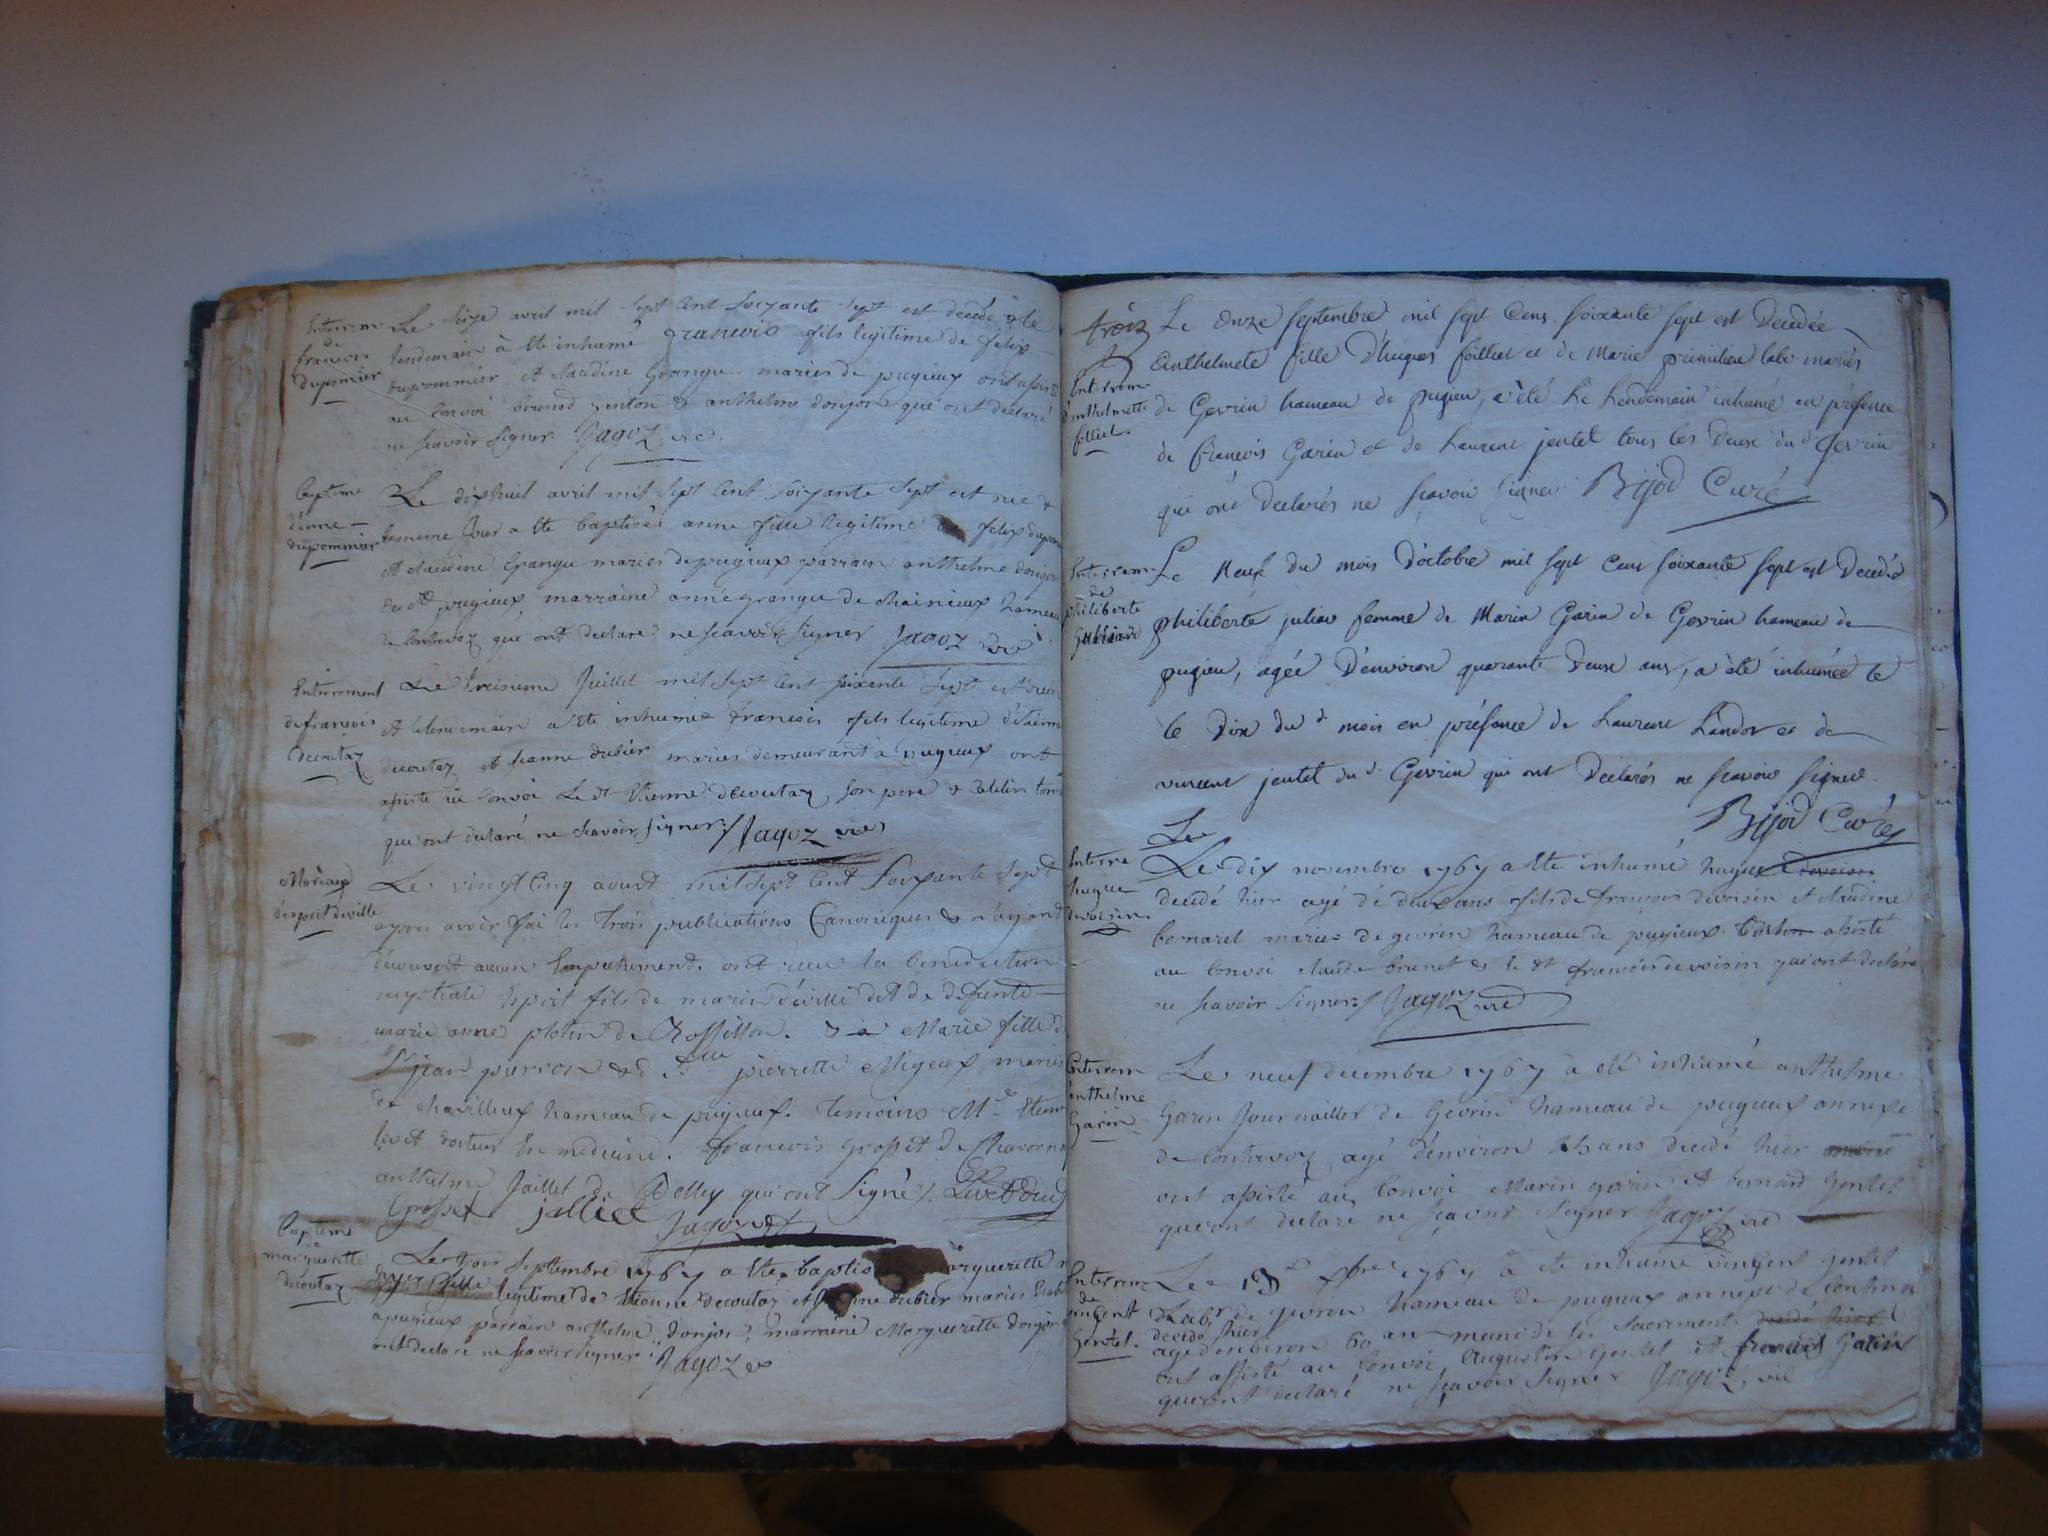 Enterrem
de
francois
dupomier
Le seize avril mil sept cent soixante sept est decedé & le
lendemain à ete inhumé francois fils legitime de felix
dupommier et claudine Grangu mariés de pugieux ont assisté
au convoi & anthelme donjon que ont declaré
ne scavoir signer Jagoz vic
Bapteme
d'anne
dupommier
Le dixhuit avril mil sept cent soixante sept est née &
le meme jour a ete baptisée anne fille legitime de felix
et claudine Grangu mariés de pugieux parrain anthelme donjon
du dt pugieux marraine anne grangu de hameau
de Contrevoz qui ont declaré ne scavoir signer Jagoz vic
Enterrement
de francois
decoutaz
Le treisieme Juillet mil sept cent soixante sept est
et le lendemain a ete inhumé francois fils legitime d'étienne
decoutaz et jeanne dubier mariés demeurant à pugieux ont
assisté au convoi Le dt Etienne decoutaz son pere &
qui ont declaré ne scavoir signer Jagoz vic
Mariage
d'esprit deville
Le vingt cinq aoust mil sept cent soixante sept
apres avoir fai les trois publications Canoniques & n'ayant
decouvert aucun Empechement ont recu la benediction
nuptiale Esprit fils de marin deville et de defunte
marie anne de Rossillon. & a Marie fille d
Sr jean & d Dlle pierrette Migeux mariés
de hameau de pugieux. Temoins Mr. Etienne
livet docteur En medecine. francois grosset de Chavorna
anthelme Jaillet de qui ont Signé Livet
Grosset jalliet Jagoz vic
Bapteme
marguerette
decoutaz
Le trois septembre 1767 a ete baptis marguerette
fille legitime de Etienne decoutaz et dubier mariés
a pugieux parrain anthelme donjon, marraine Marguerette donjon
ont declaré ne scavoir signer Jagoz vic
trois
Enterrem
d'anthelmette
folliet
Le Onze septembre mil sept Cens soixante sept est Decedée
Anthelmete fille D'hugues folliet et de Marie labe mariés
de Gevrin hameau de pugieu, a été le Lendemain inhumé en présence
de francois Garin et de Laurent jentet tous les Deux du dt Gevrin
qui ont Declarés ne scavoir signer Bijod Curé
Enterrem
de
philiberte
Le Neuf du mois D'octobre mil sept Cens soixante sept est Decedée
philiberte julian femme de Marin Garin de Gevrin hameau de
pugieu, agée D'environ quarante Deux ans, a été inhumée le
le Dix du dt mois en présence de Laurent Landoz et de
vincent jentet du dt Gevrin qui ont Déclarés ne scavoir signer.
Bijod Curé
Le
Enterre
hugue
devoisin
Le dix novembre 1767 a ete inhumé hugue devoisin
decedé hier agé de deux ans fils de francois devoisin et claudine
bernard mariés de gevrin hameau de pugieux assisté
au convoi claude brunet & le dt francois devoisin qui ont declaré
ne scavoir signer Jagoz vic
Enterrem
anthelme
Garin
Le neuf decembre 1767 a eté inhumé anthelme
Garin Journallier de Gevrin hameau de pugieux annexe
de Contrevoz agé d'environ ans decedé hier
ont assisté au convoi Marin garin et bernard Gentet
qui ont declaré ne scavoir signer Jagoz vic
Enterrem
de
vincent
Gentet.
Le 13 xbre 1767 a ete inhumé vincent Gentet
Lab. de gevrin hameau de pugieux annexe de Contrevoz
decedé hier
agé denviron 60 an muni de ses sacrements decedé hier
ont assisté au convoi, Augustin Gentet et francois Garin
qui ont declaré ne scavoir signer Jagoz vic